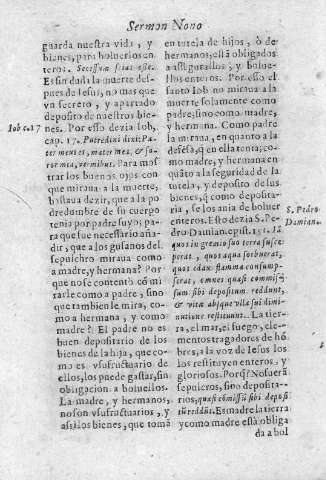 Sermon Nono
guarda nuestra vida, y
bienes, para boluerlos en-
teros. Secessum seias esse.
Es sin duda la muerte des-
pues de Iesus, no mas que
vn secreto, y apartado
deposito de nuestros bie-
nes. Por esso dezia Iob,
cap. 17. Putredini dixi: Pa-
ter meus es, mater mea, & so-
ror mea, vermibus. Para mos
trar los buenos ojos con
que miraua a la muerte,
bastaua dezir, que a la po
dredumbre de su cuerpo
tenia por padre suyo; pa-
ra que fue necessario aña-
dir, que a los gusanos del
sepulchro miraua como
a madre, y hermana? Por
que no se contentò cō mi
rarle como a padre, sino
que tambien le mira, co-
mo a hermana, y como
madre? El padre no es
buen depositario de los
bienes de la hija, que co-
mo es vsufructuario de
ellos, los puede gastar, sin
obligacion a boluellos.
La madre, y hermanos,
no son vsufructuarios, y
assi los bienes, que toma
Iob c. 17
en tutela de hijos, ò de
hermanos, està obligados
a assegurallos, y boluē-
llos enteros. Por esso el
santo Iob no miraua a la
muerte solamente como
padre, sino como madre,
y hermana. Como padre
la miraua, en quanto a la
defēsa, q̄ en ella tenia; co-
mo madre, y hermana en
quāto a la seguridad de la
tutela, y deposito de sus
bienes, q̄ como deposita-
ria, se los auia de boluer
enteros. Esto dezia S. Pe-
dro Damian. epist. 151. Ad
quos in gremio suo terra susce-
perat, quos aqua sorbuerat,
quos edax flamma consump-
serat, omnes quasi commis-
sum sibi depositum reddunt,
& vitæ absque vlla sui dimi-
nutione restituunt. La tier-
ra, el mar, el fuego, ele-
mentos tragadores de hō-
bres, a la voz de Iesus los
los restituyen enteros, y
gloriosos. Porq̄? No fuerā
sepulcros, sino deposita-
rios, quasi cōmissū sibi deposi
tū reddūt. Es madre la tierra
y como madre està obliga
da a bol
S. Pedro
Damiano.